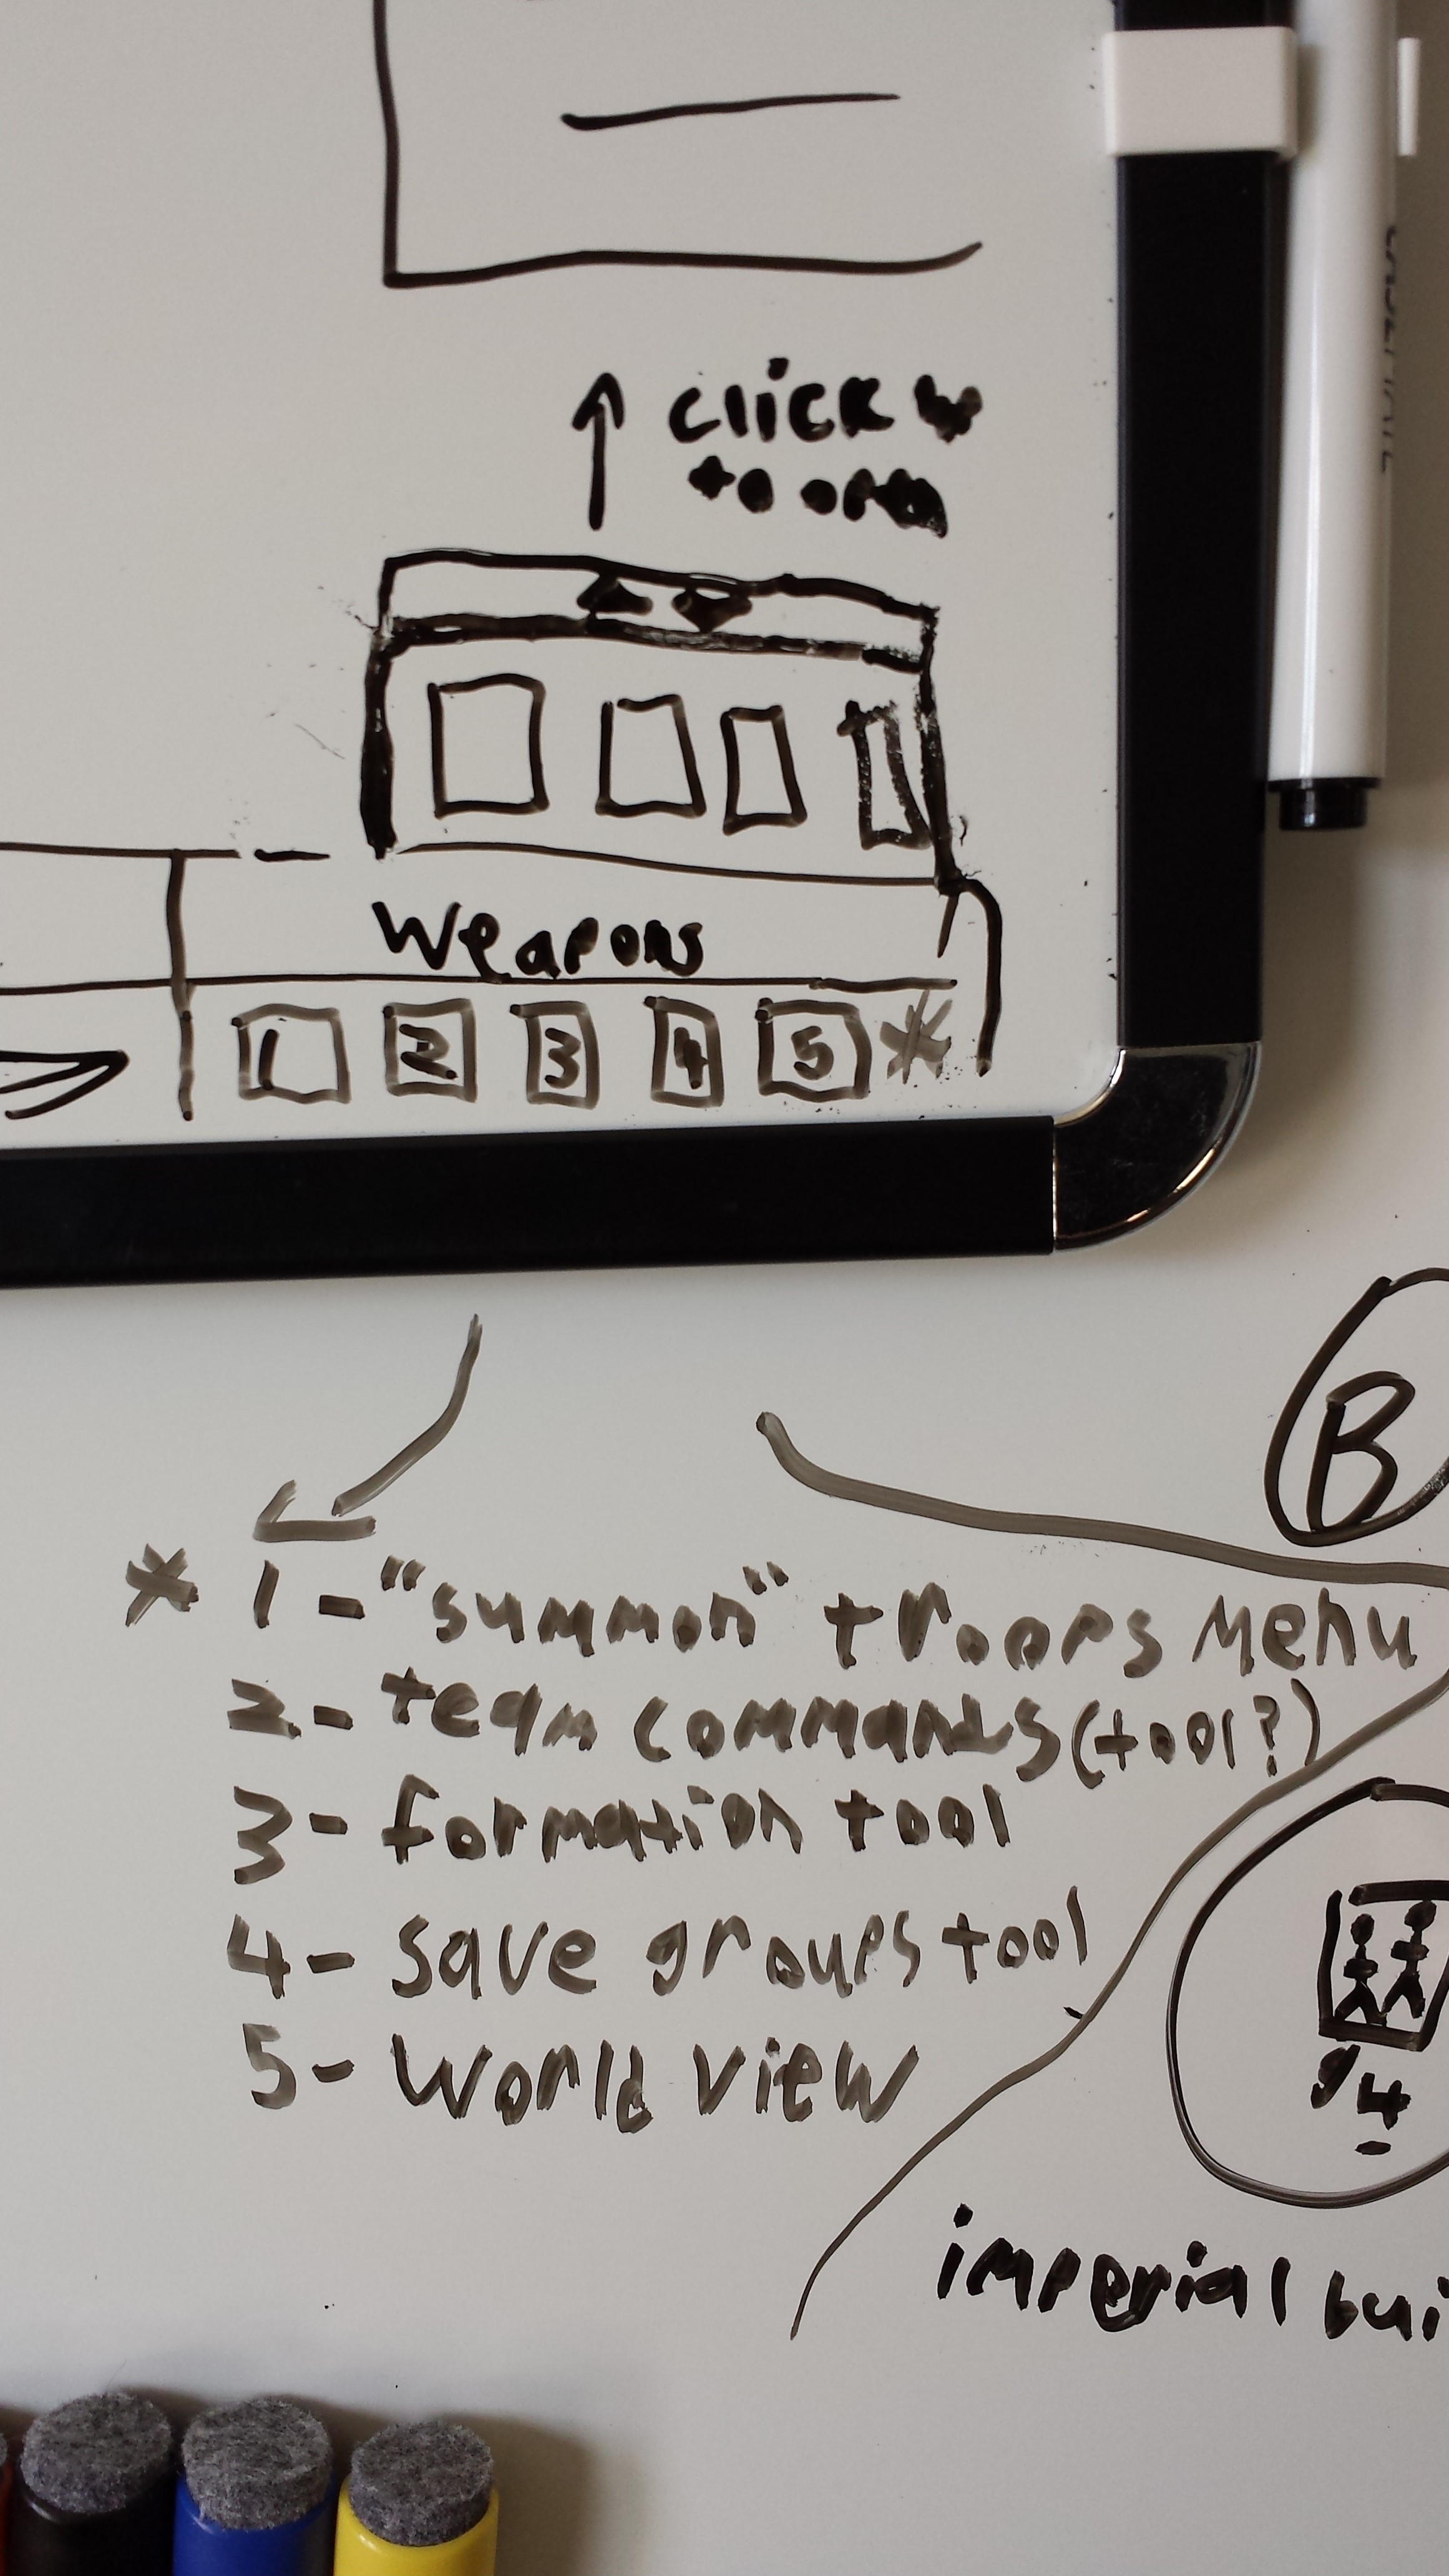 click
to open
Weapons
1 2 3 4 5 *
B
* 1 - "summon" troops menu
2 - team commands (tool?)
3 - formation tool
4 - save groups tool
5 - world view
4
imperial bui